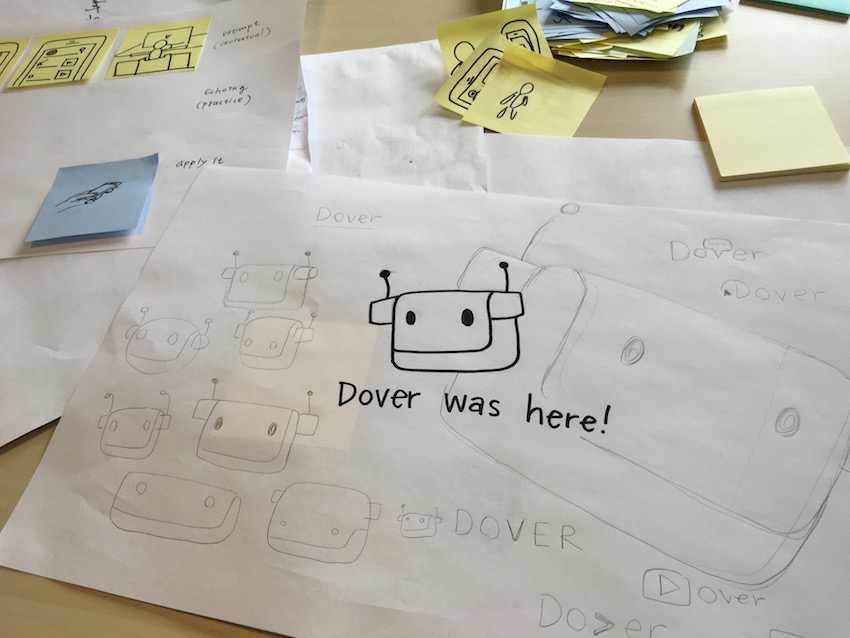 Prompt
(contextual)
Echoing
(practice)
apply it
Dover
Dover
Dover
Dover was here!
DOVER
over
Do>er